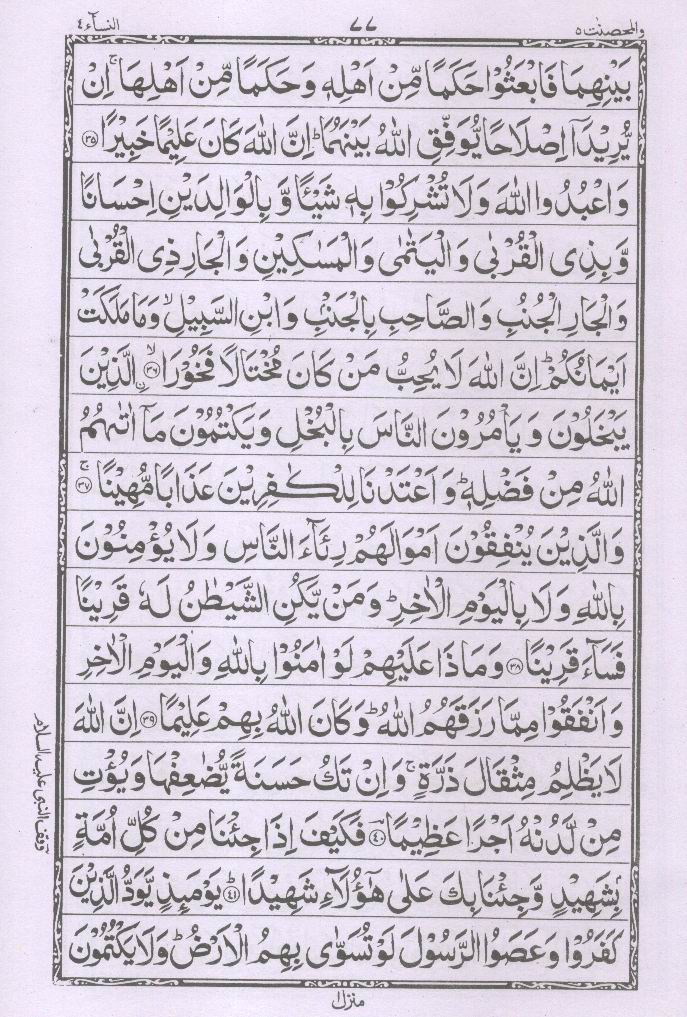 والمحصنٰت ٥ ٧٧ النسآء ٤
بَيْنِهِمَا فَابْعَثُوْا حَكَمًا مِّنْ اَهْلِهٖ وَ حَكَمًا مِّنْ اَهْلِهَا ۚ اِنْ
يُّرِيْدَاۤ اِصْلَاحًا يُّوَفِّقِ اللّٰهُ بَيْنَهُمَا ؕ اِنَّ اللّٰهَ كَانَ عَلِيْمًا خَبِيْرًا ﴿٣٥﴾
وَ اعْبُدُوا اللّٰهَ وَ لَا تُشْرِكُوْا بِهٖ شَيْـًٔا وَّ بِالْوَالِدَيْنِ اِحْسَانًا
وَّ بِذِى الْقُرْبٰى وَ الْيَتٰمٰى وَ الْمَسٰكِيْنِ وَ الْجَارِ ذِى الْقُرْبٰى
وَ الْجَارِ الْجُنُبِ وَ الصَّاحِبِ بِالْجَنْۢبِ وَ ابْنِ السَّبِيْلِ ۙ وَ مَا مَلَكَتْ
اَيْمَانُكُمْ ؕ اِنَّ اللّٰهَ لَا يُحِبُّ مَنْ كَانَ مُخْتَالًا فَخُوْرَا ۙ﴿٣٦﴾ اۨلَّذِيْنَ
يَبْخَلُوْنَ وَ يَاْمُرُوْنَ النَّاسَ بِالْبُخْلِ وَ يَكْتُمُوْنَ مَاۤ اٰتٰٮهُمُ
اللّٰهُ مِنْ فَضْلِهٖ ؕ وَ اَعْتَدْنَا لِلْكٰفِرِيْنَ عَذَابًا مُّهِيْنًا ۚ﴿٣٧﴾
وَ الَّذِيْنَ يُنْفِقُوْنَ اَمْوَالَهُمْ رِئَآءَ النَّاسِ وَ لَا يُؤْمِنُوْنَ
بِاللّٰهِ وَ لَا بِالْيَوْمِ الْاٰخِرِ ؕ وَ مَنْ يَّكُنِ الشَّيْطٰنُ لَهٗ قَرِيْنًا
فَسَآءَ قَرِيْنًا ﴿٣٨﴾ وَ مَا ذَا عَلَيْهِمْ لَوْ اٰمَنُوْا بِاللّٰهِ وَ الْيَوْمِ الْاٰخِرِ
وَ اَنْفَقُوْا مِمَّا رَزَقَهُمُ اللّٰهُ ؕ وَ كَانَ اللّٰهُ بِهِمْ عَلِيْمًا ﴿٣٩﴾ اِنَّ اللّٰهَ
لَا يَظْلِمُ مِثْقَالَ ذَرَّةٍ ۚ وَ اِنْ تَكُ حَسَنَةً يُّضٰعِفْهَا وَ يُؤْتِ
مِنْ لَّدُنْهُ اَجْرًا عَظِيْمًا ﴿٤٠﴾ فَكَيْفَ اِذَا جِئْنَا مِنْ كُلِّ اُمَّةٍۭ
بِشَهِيْدٍ وَّ جِئْنَا بِكَ عَلٰى هٰۤؤُلَآءِ شَهِيْدًا ؕ﴿٤١﴾ يَوْمَئِذٍ يَّوَدُّ الَّذِيْنَ
كَفَرُوْا وَ عَصَوُا الرَّسُوْلَ لَوْ تُسَوّٰى بِهِمُ الْاَرْضُ ؕ وَ لَا يَكْتُمُوْنَ
وقف النبي عليه السلام
منزل ١